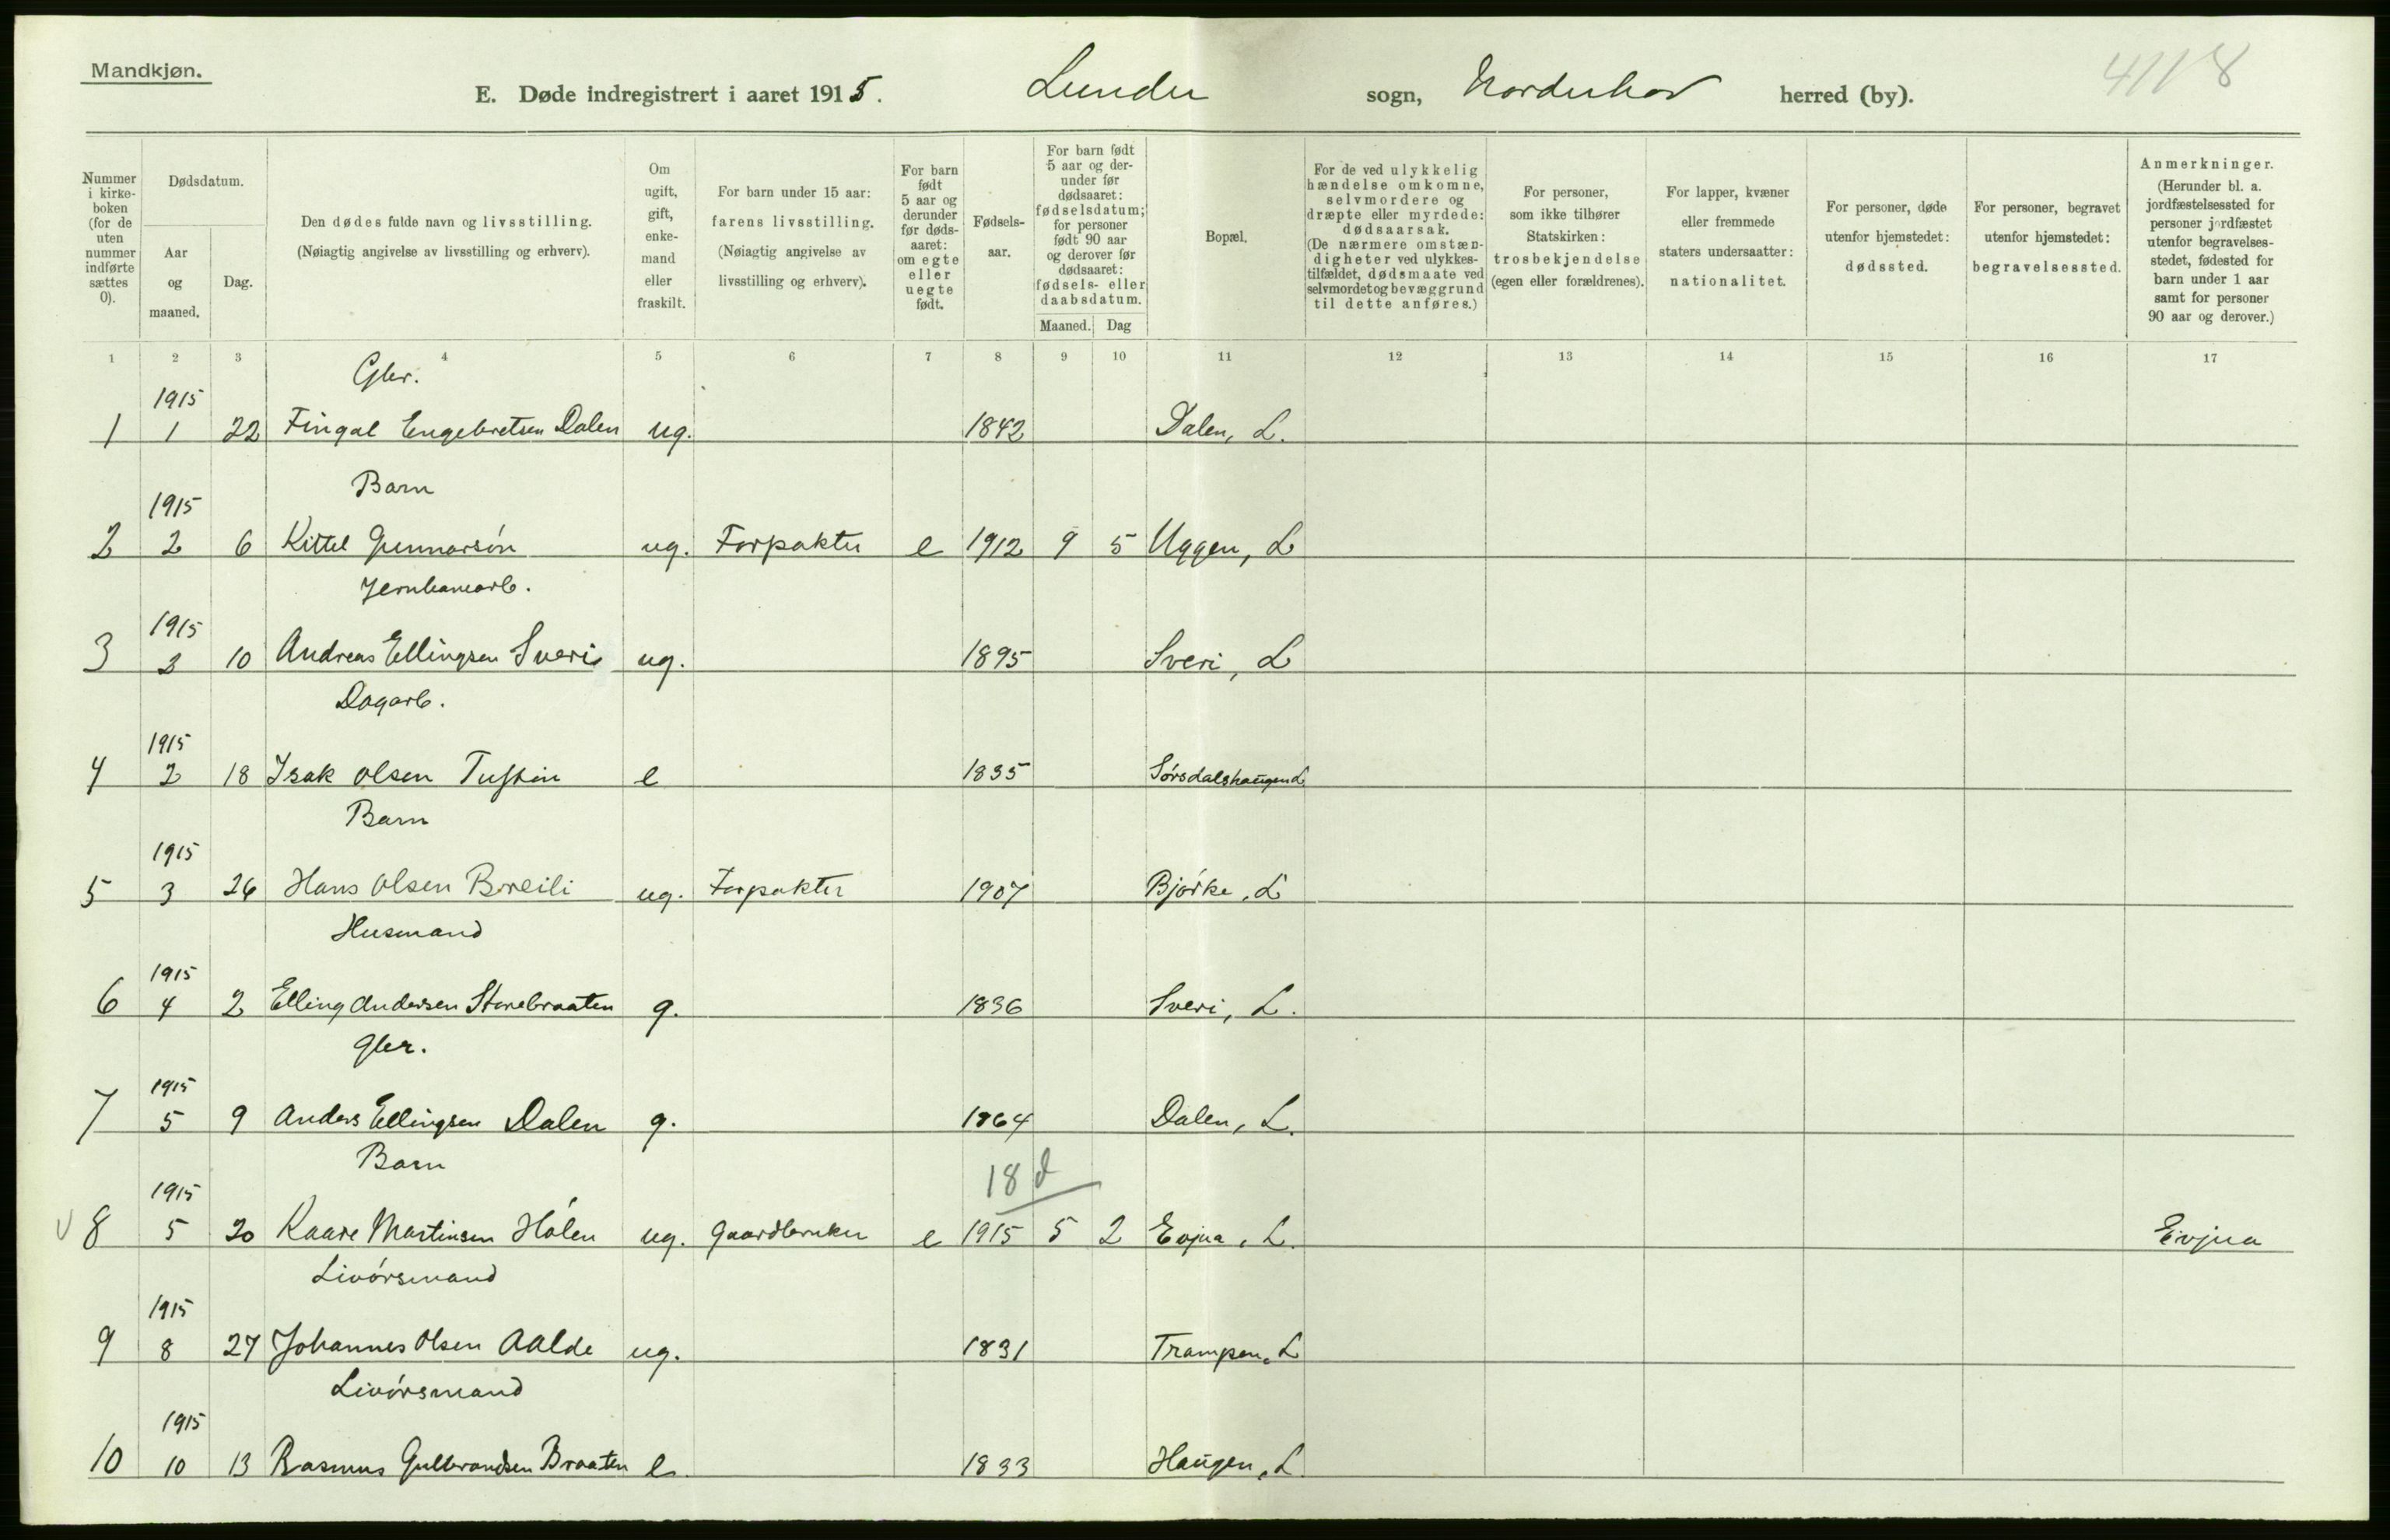 Mandkjøn.
4118
E. Døde indregistrert i aaret 1915. Lunder sogn, Norderhov herred (by).
Nummer i kirke-boken (for de uten nummer indførte sættes 0).
Dødsdatum.
Aar og maaned.
Dag.
Den dødes fulde navn og livsstilling.
(Nøiagtig angivelse av livsstilling og erhverv).
Om ugift, gift, enke-mand eller fraskilt.
For barn under 15 aar: farens livsstilling.
(Nøiagtig angivelse av livsstilling og erhverv).
For barn født 5 aar og derunder før døds-aaret: om egte eller uegte født.
Fødsels-aar.
For barn født 5 aar og der-under før dødsaaret: fødselsdatum; for personer født 90 aar og derover før dødsaaret: fødsels- eller daabsdatum.
Maaned. Dag
Bopæl.
For de ved ulykkelig hændelse omkomne, selvmordere og dræpte eller myrdede: dødsaarsak.
(De nærmere omstæn-digheter ved ulykkes-tilfældet, dødsmaate ved selvmordet og bevæggrund til dette anføres.)
For personer, som ikke tilhører Statskirken: trosbekjendelse (egen eller forældrenes).
For lapper, kvæner eller fremmede staters undersaatter: nationalitet.
For personer, døde utenfor hjemstedet: dødssted.
For personer, begravet utenfor hjemstedet: begravelsessted.
Anmerkninger.
(Herunder bl. a. jordfæstelsessted for personer jordfæstet utenfor begravelses-stedet, fødested for barn under 1 aar samt for personer 90 aar og derover.)
1 2 3 4 5 6 7 8 9 10 11 12 13 14 15 16 17
Gbr.
1915
1 1 22 Fingal Engebretsen Dalen ug. 1842 Dalen, L.
Barn
1915
2 2 6 Kittel Gunnarsön ug. Forpakter e 1912 9 5 Uggen, L
Jernbanearb.
1915
3 2 10 Andreas Ellingsen Sveri ug. 1895 Sveri, L
Dagarb.
1915
4 2 18 Isak Olsen Tuftin e 1835 Sørsdalshaugen L
Barn
1915
5 3 26 Hans Olsen Breili ug. Forpakter 1907 Bjørke, L
Husmand
1915
6 4 2 Elling Andersen Storebraaten g. 1836 Sveri, L.
Gbr.
1915
7 5 9 Anders Ellingsen Dalen g. 1864 Dalen, L.
Barn
18 d
1915
8 5 20 Kaare Martinsen Hólen ug. Gaardbruker e 1915 5 2 Evjua, L. Evjua
Livórsmand
1915
9 8 27 Johannes Olsen Aalde ug. 1831 Trampen, L
Livórsmand
1915
10 10 13 Rasmus Gulbrandsen Braaten e. 1833 Haugen, L